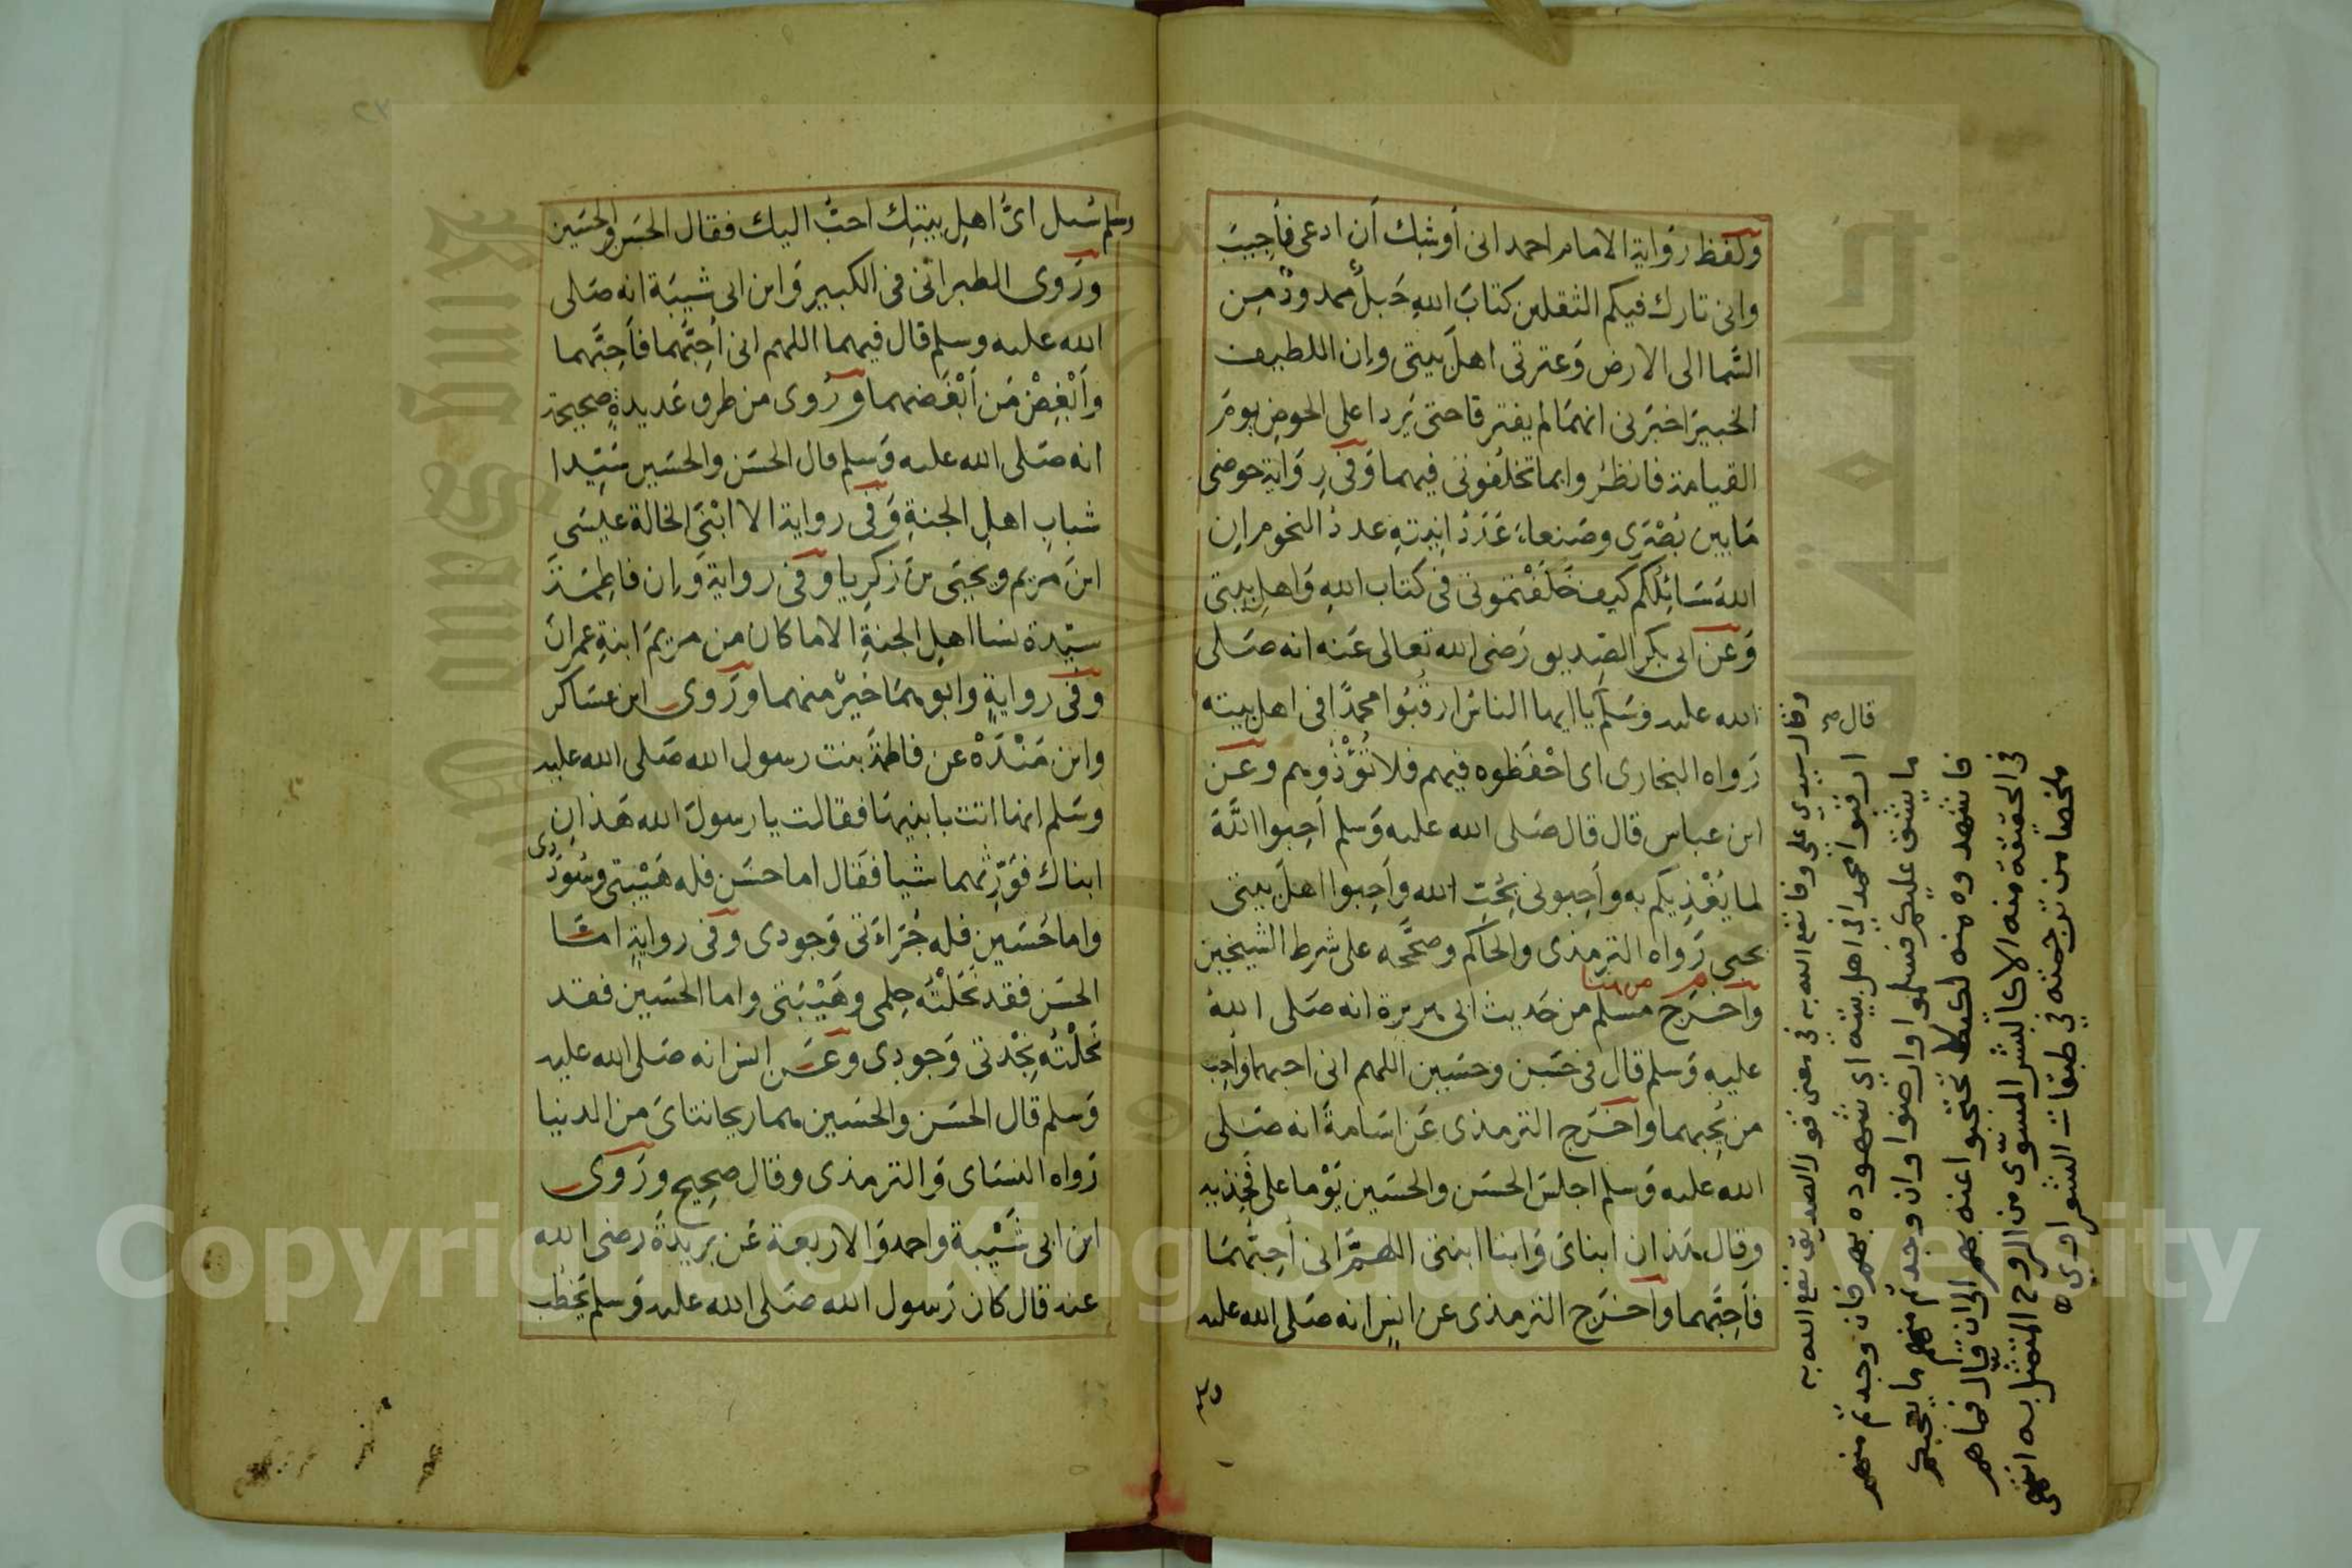 ولفظ رواية الامام احمد انى أوشك أن ادعى فأجيبَ
وانى تارك فيكم الثقلين كتابَ اللهِ حَبلٌ ممدودٌ مِن
السَّما الى الارض وَعترتى اهلَ بيتى وإن اللطيف
الخبيرَ اخبَرنى انهمَا لم يفترقا حتى يَردا على الحوضِ يومَ
القيامة فانظرُوا بما تخلُفونى فيهما وَفى رِوَاية حوضى
مَا بين بُصْرَى وصَنعاءَ عَدَدُ انِيتهِ عددُ النجوم إن
اللهَ سَائِلُكم كيف خَلَفْتمونى فى كتاب اللهِ وَاهلِ بيتى
وَعن ابى بكر الصِّديق رَضى الله تعالى عَنه انه صَلى
الله عليه وَسَلم يا ايها الناسُ ارقُبُوا محمدًا فى اهل بيته
رَواه البخارى اى احْفَظوه فيهم فلا تُؤْذُوهم وعَن
ابن عباس قال قال صَلى الله عليه وَسلم أَحِبوا اللَّهَ
لما يَغْذِيكم به وأَحِبونى بحُبِّ الله وأَحِبوا اهلَ بيتى
بحبى رَواه الترمذى والحاكم وصحَّحه على شرط الشيخين
وأخرَج مسلم من حَديث ابى هريرة انه صَلى اللهُ
عليهِ وَسلم قال فى حَسَن وحسَين اللهم انى احبهما وأَحِب
من يُحِبهما وأخرَج الترمذى عَن اسَامةَ انه صَلى
الله عليه وَسلم اجلسَ الحسَن والحسَين يَوْما على فَخِذيه
وقال هَذان ابناىَ وَابنا ابنتى اللهمَّ انى أُحِبُّهمَا
فأَحِبَّهما وأخرَج الترمذى عن انسٍ انه صَلى الله عليه
قال ص
وقال سيدى على وفا نفع الله به فى معنى قول الصديق نفع الله به
ارقبوا محمدا فى اهل بيته اى شهوده بهم فان وجدتم منهم
ما يشق عليكم فسلموا وارضوا وان وجدتم منهم ما يعجبكم
فاشهدوه منه لكيلا تحتجبوا عنه بهم الى ان قال فما هم
فى الحقيقة منه الا كالبشر المسوّى من الروح المتمثل به انتهى
ملخصا من ترجمته فى طبقات الشعراوى
وسلم سُئل اىُّ اهلِ بيتِك احبُّ اليك فقال الحَسَن والحسَين
ورَوى الطبرانى فى الكبير وَابن ابى شيبَة انه صَلى
الله عليه وسلم قال فيهما اللهم انى أُحِبُّهما فأَحِبَّهما
وأَبْغِضْ مَن أَبْغَضهما ورُوى من طرق عَديدةٍ صحيحة
انه صَلى الله عليه وَسلم قال الحسَن والحسَين سَيِّدا
شبابِ اهلِ الجنةِ وَفى رواية الا ابْنَىِ الخالة عيسَى
ابنَ مريم ويحيَى بنَ زكريا وَفى رواية وَإن فاطمَة
سيّدة نسا اهلِ الجنةِ الا ما كان من مريَم ابنةِ عمرانَ
وفى روايةٍ وابوهمَا خيرٌ منهما ورَوى ابن عسَاكر
وابن مَنْدَهْ عن فاطمَة بنت رسول الله صَلى الله عليه
وسَلم انها اتت بابنيهَا فقالت يا رسولَ الله هَذانِ
ابناك فوَرِّثْهما شيا فقَال اما حسَن فله هَيْبتى وسُودَدى
واما حُسَين فله جُرَاءتى وَجودى وَفى روايةٍ امَّا
الحسَن فقد نَحَلْتُه حِلمى وهَيْبَتى واما الحسَين فقد
نَحلْتُه نَجْدتى وَجودى وعَن انس انه صَلى الله عليه
وَسلم قال الحسَن والحسَين هما ريحانتاىَ من الدنيا
رَواه النسَاى وَالترمذى وقال صَحِيح ورَوَى
ابن ابى شَيْبة واحمد وَالاربعة عَن بريَدة رضى الله
عنه قال كان رَسول الله صَلى الله عليه وَسلم يَخطُب
Copyright © King Saud University
King Saud University